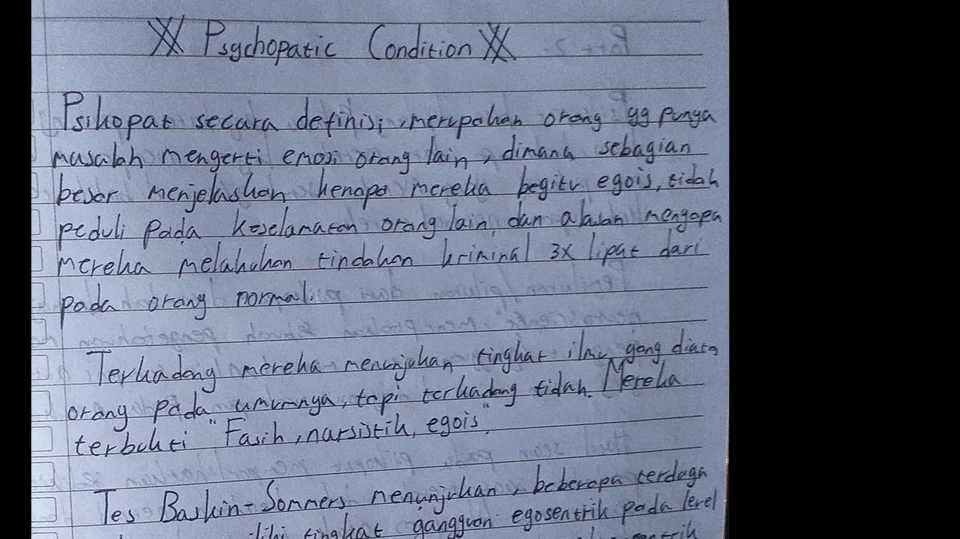 Psychopatic Condition
Psikopat secara definisi, merupakan orang yg punya
masalah mengerti emosi orang lain, dimana sebagian
besar menjelaskan kenapa mereka begitu egois, tidak
peduli pada keselamatan orang lain, dan alasan mengapa
mereka melakukan tindakan kriminal 3x lipat dari
pada orang normal.
Terkadang mereka menunjukan tingkat ilmu yang diatas
orang pada umumnya, tapi terkadang tidak. Mereka
terbukti "Fasih, narsistik, egois".
Tes Baskin-Sommers menunjukan, beberapa terduga
tingkat gangguan egosentrik pada level